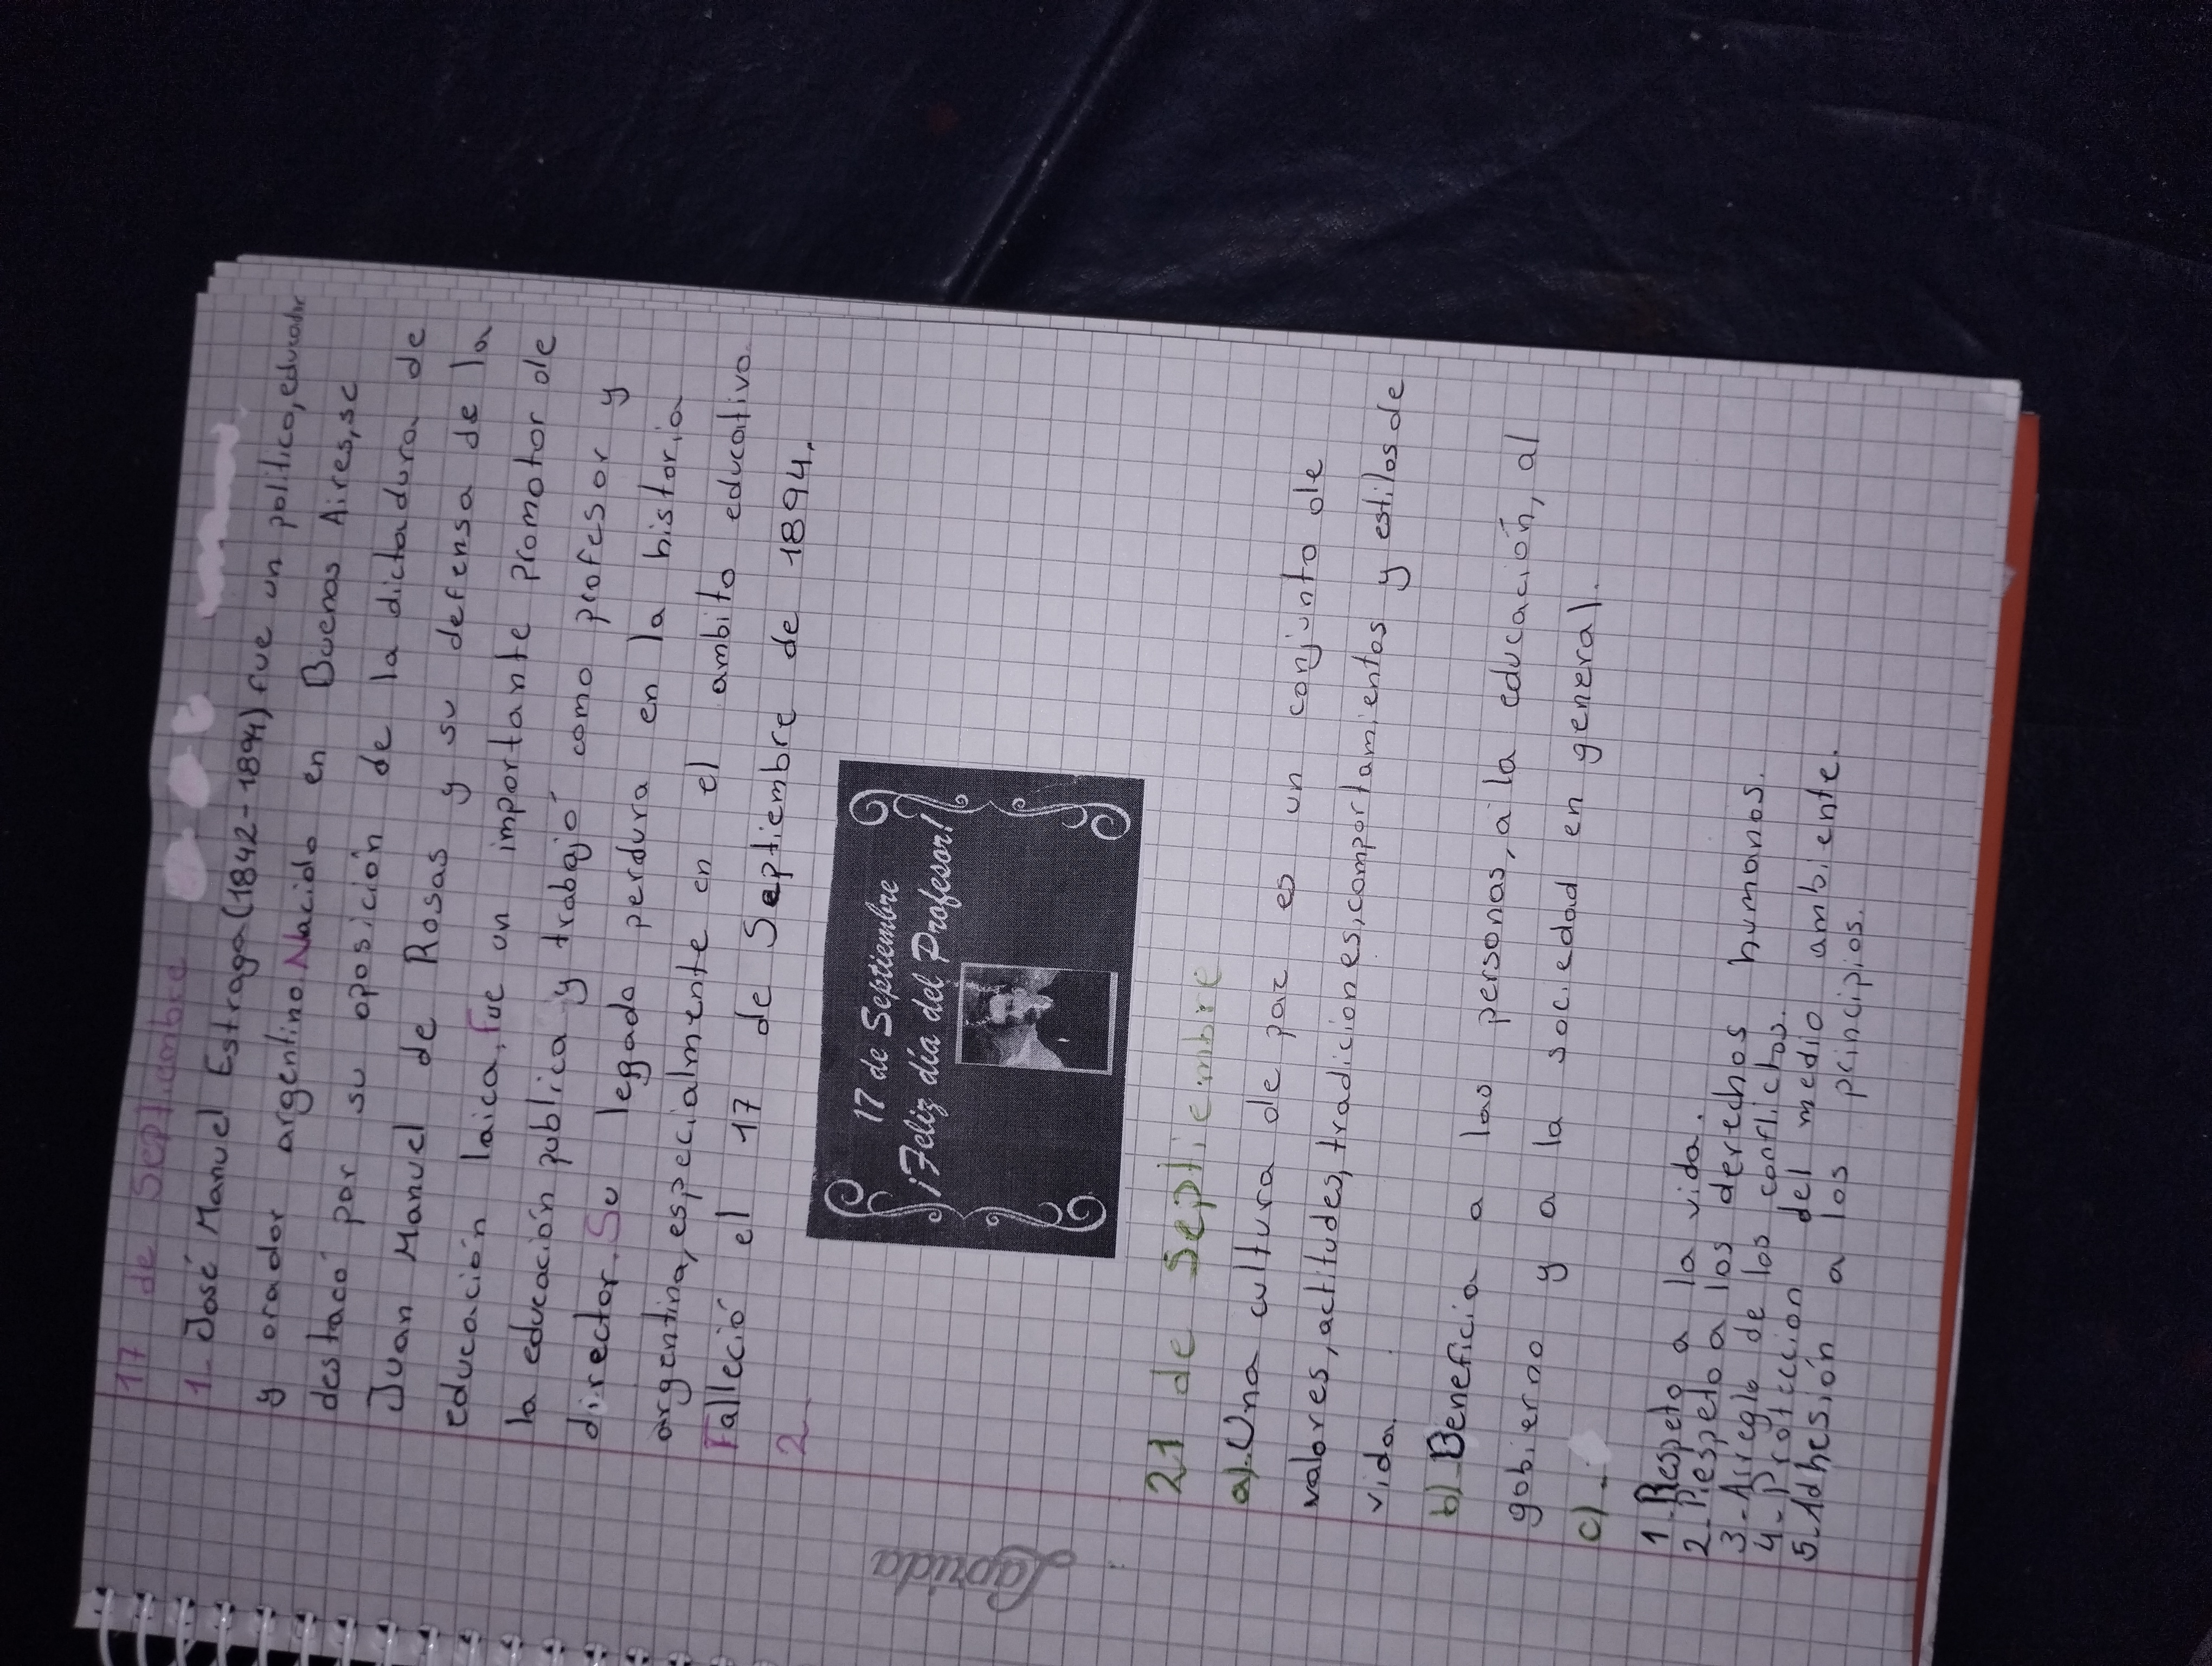 17 de Septiembre
1- José Manuel Estraga (1842-1894) fue un politico, educador
y orador argentino. Nacido en Buenos Aires, se
destacó por su oposición de la dictadura de
Juan Manuel de Rosas y su defensa de la
educación laica. Fue un importante promotor de
la educación publica y trabajó como profesor y
director. Su legado perdura en la historia
argentina, especialmente en el ambito educativo.
Falleció el 17 de Septiembre de 1894.
2.
17 de Septiembre
¡Feliz día del Profesor!
21 de Septiembre
a)- Una cultura de paz es un conjunto de
valores, actitudes, tradiciones, comportamientos y estilos de
vida.
b)- Beneficia a las personas, a la educación, al
gobierno y a la sociedad en general.
c)-
1- Respeto a la vida.
2- Respeto a los derechos humanos.
3- Arreglo de los conflictos.
4- Protección del medio ambiente.
5- Adhesión a los principios.
Laprida